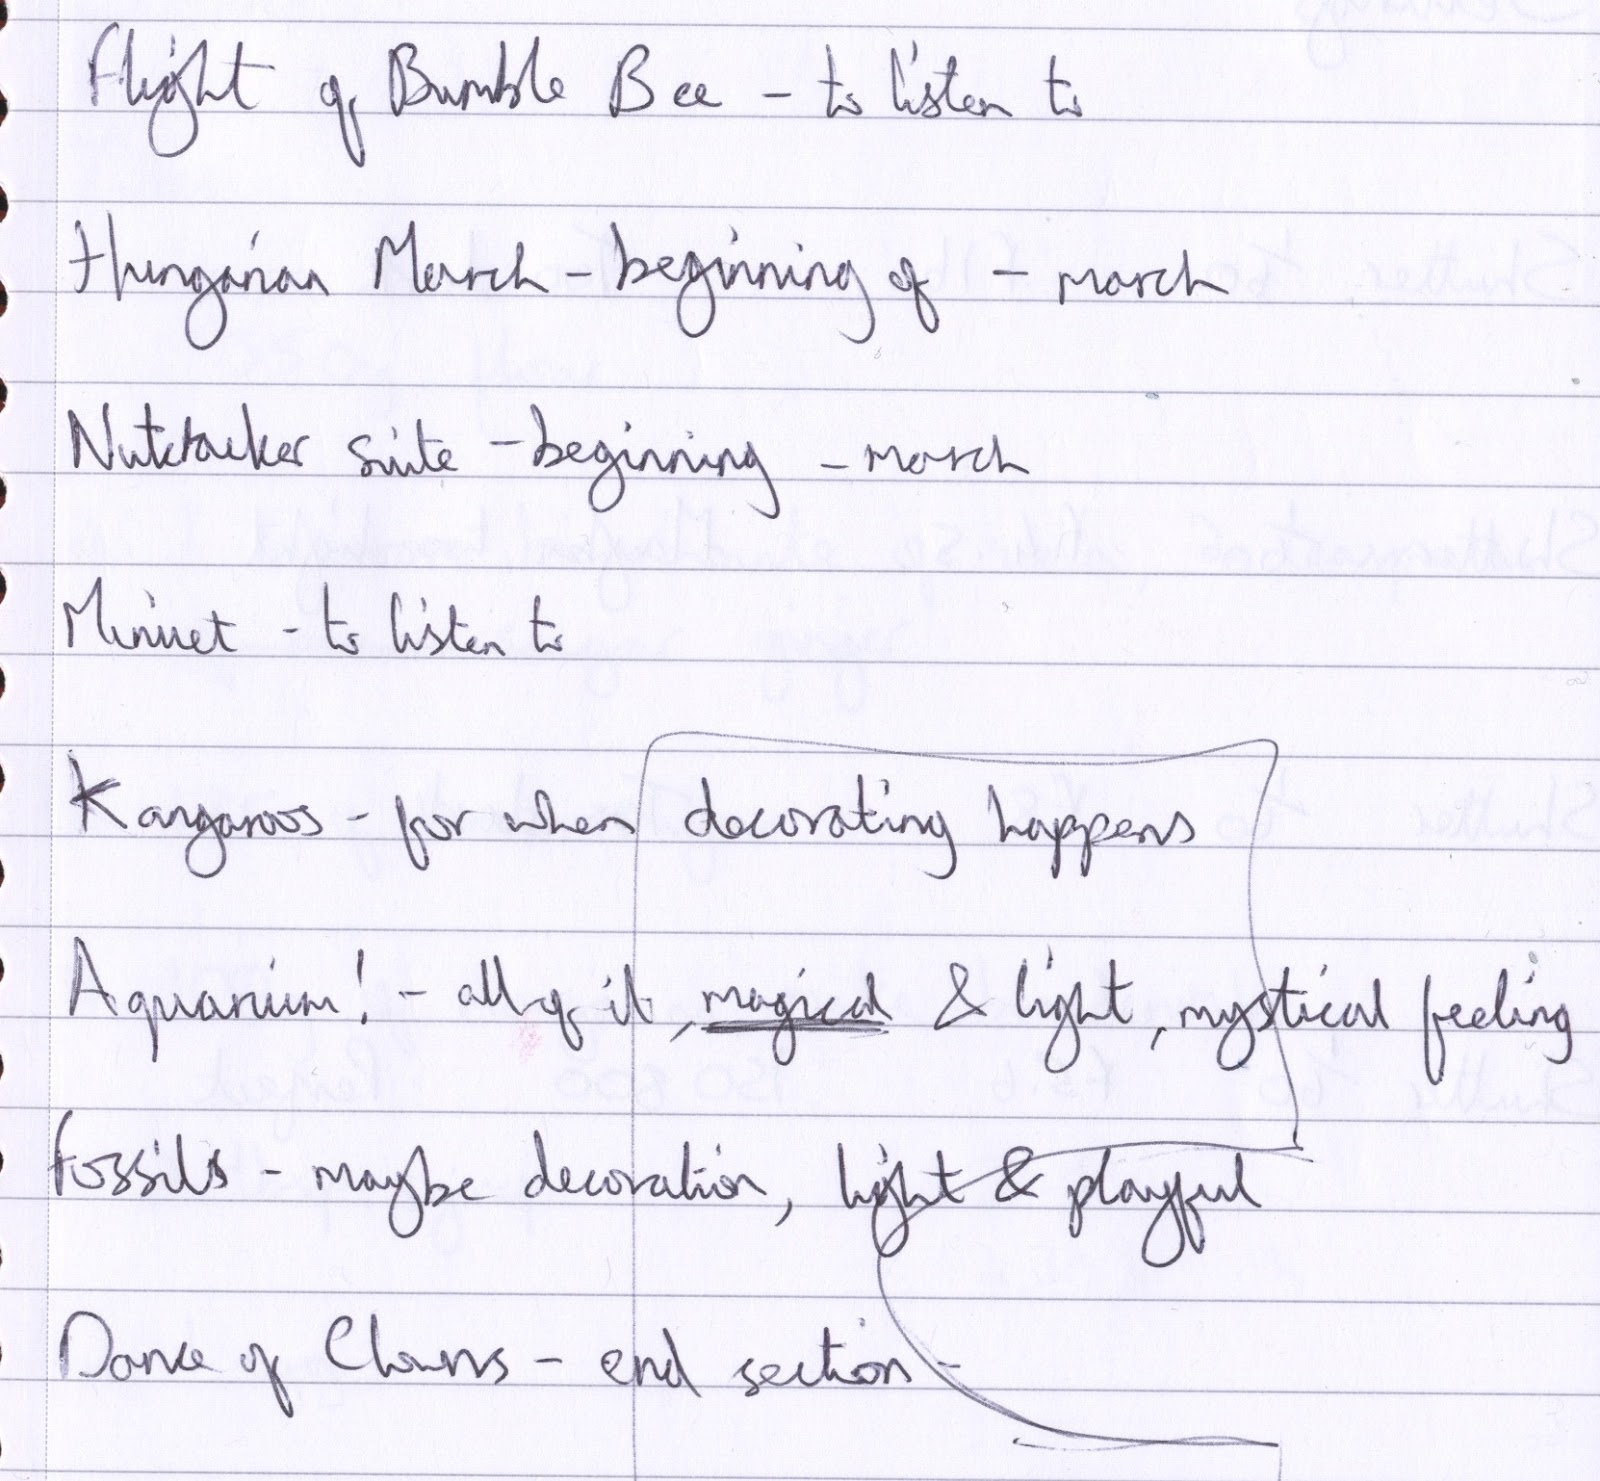 Flight of Bumble Bee - to listen to
Hungarian March - beginning of - march
Nutcracker suite - beginning - march
Minuet - to listen to
Kangaroos - for when decorating happens
Aquarium! - all of it, magical & light, mystical feeling
Fossils - maybe decoration, light & playful
Dance of Clowns - end section -